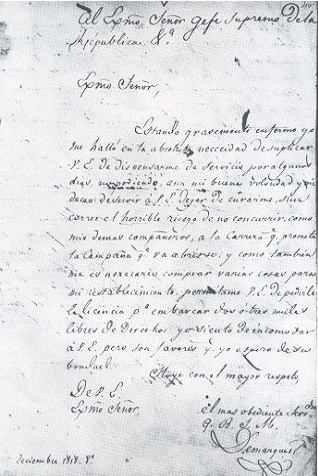 Al Exmo. Señor gefe Supremo de la
República &ª
Exmo Señor,
Estando grasimente enfermo yo
me hallo en la absoluta neccidad de suplicar
V.E. de dispensarme de servicio por algunos
dias, no podiendo, con mi buena voluntad y mi
deceo de servir a V.E. dejar de curarme, sin
correr el horrible riesgo de no concurrir, como
mis demas compañeros, a la Carrera q. promete
la Campaña q. va a abrirse, y como también
me es necesario comprar varias cosas para
mi restablecimiento, permitame V.E. de pedirle
la licencia pª embarcar dos o tres mulas
libres de Derechos yo siento de incomodar
à V.E. pero son favores q. yo espero de su
bondad.
Soy con el mayor respeto
De V.E.
Exmo Señor,
el mas obediente Servdor
q. B. S. M.
Demarquet
diciembre 1818. 8º